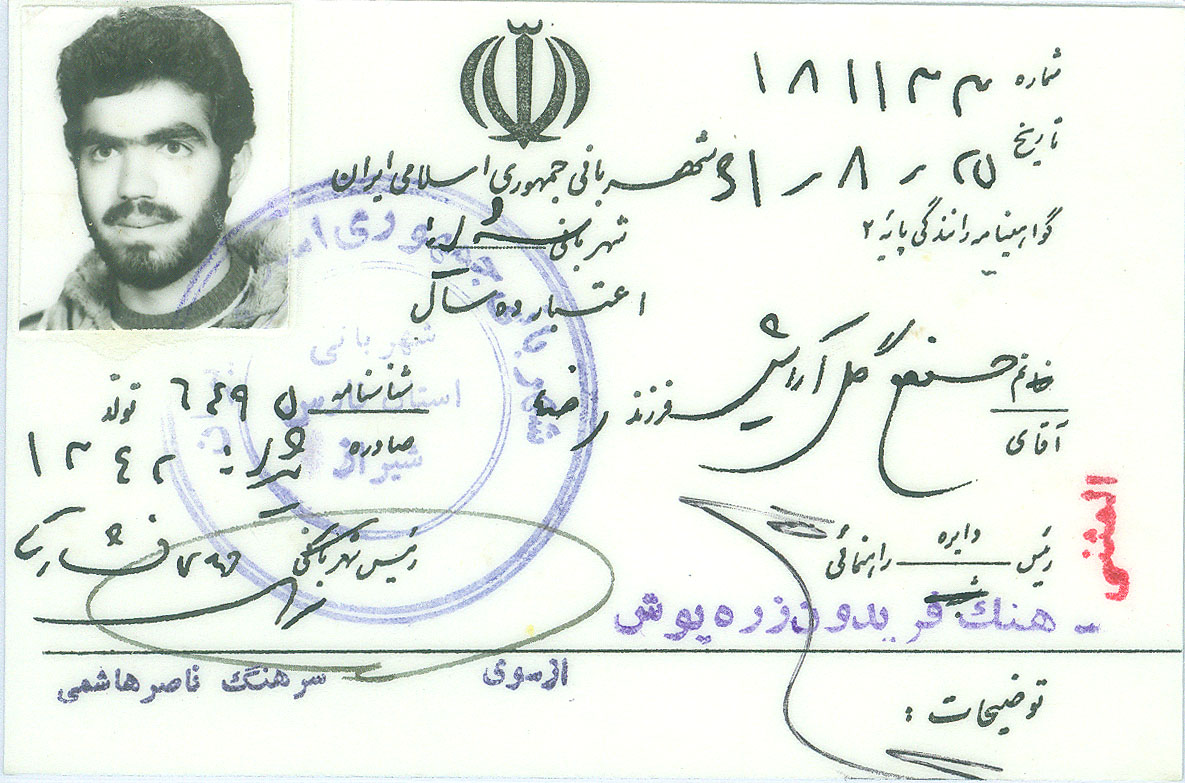 شماره ۱۸۱۱۳۳
تاریخ ۲۵ ر ۸ ر ۶۱
شهربانی جمهوری اسلامی ایران
شهربانی شیراز
گواهینامه رانندگی پایه ۲
اعتبار ده سال
خانم
آقای
گل آرایش فرزند رضا
شناسنامه ۶۴۹۵
تولد ۱۳۴۲
صادره شیراز
شهربانی جمهوری
شهربانی
استان فارس
شیراز
المثنی
رئیس دایره راهنمائی
رئیس شهربانی
افشار
- هنگ فریدون زره پوش
از سوی سرهنگ ناصر هاشمی
توضیحات :